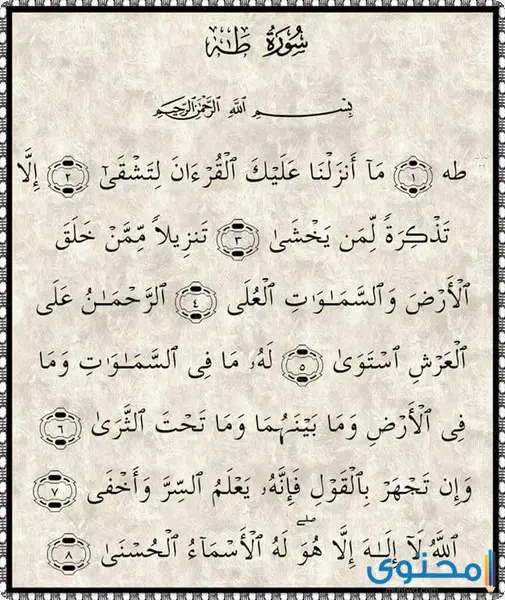 سُورَةُ طَهَ
بِسْمِ اللَّهِ الرَّحْمَٰنِ الرَّحِيمِ
طه ۝١ مَآ أَنزَلْنَا عَلَيْكَ ٱلْقُرْءَانَ لِتَشْقَىٰٓ ۝٢ إِلَّا
تَذْكِرَةً لِّمَن يَخْشَىٰ ۝٣ تَنزِيلاً مِّمَّنْ خَلَقَ
ٱلْأَرْضَ وَٱلسَّمَـٰوَٰتِ ٱلْعُلَى ۝٤ ٱلرَّحْمَـٰنُ عَلَى
ٱلْعَرْشِ ٱسْتَوَىٰ ۝٥ لَهُۥ مَا فِى ٱلسَّمَـٰوَٰتِ وَمَا
فِى ٱلْأَرْضِ وَمَا بَيْنَهُمَا وَمَا تَحْتَ ٱلثَّرَىٰ ۝٦
وَإِن تَجْهَرْ بِٱلْقَوْلِ فَإِنَّهُۥ يَعْلَمُ ٱلسِّرَّ وَأَخْفَى ۝٧
ٱللَّهُ لَآ إِلَـٰهَ إِلَّا هُوَ ۖ لَهُ ٱلْأَسْمَآءُ ٱلْحُسْنَىٰ ۝٨
محتوى